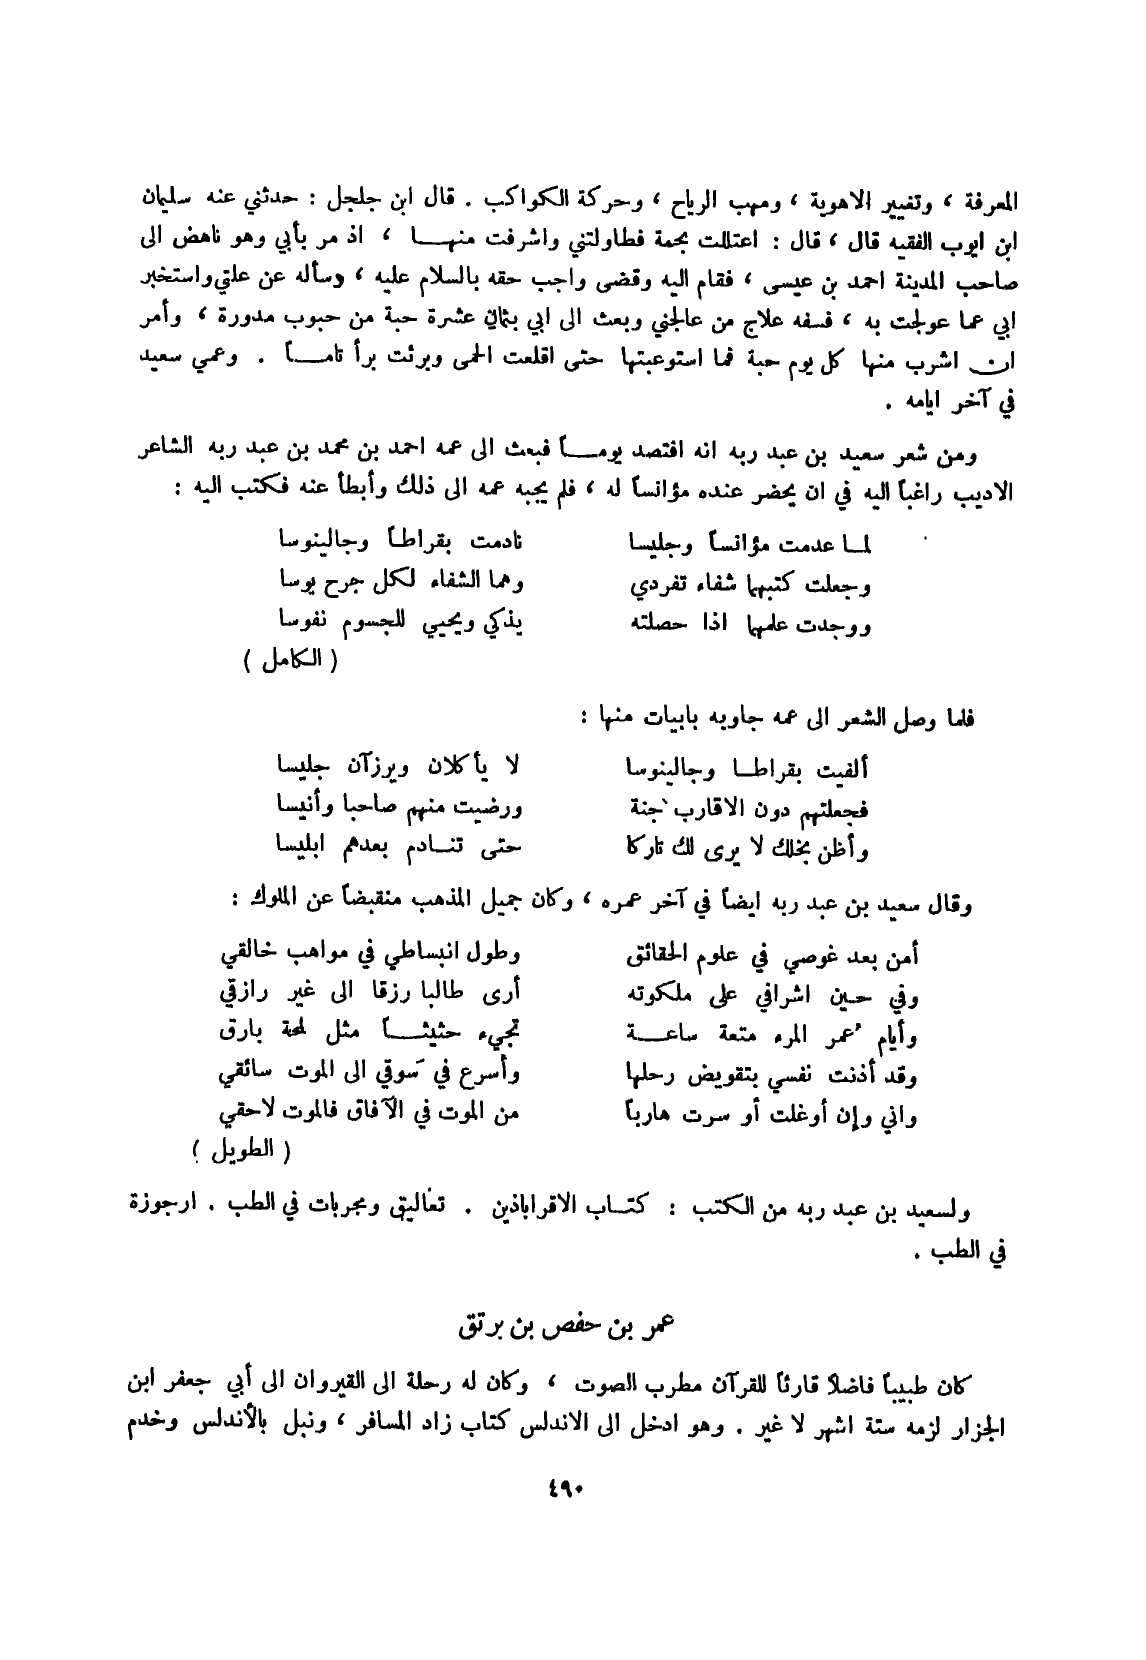 المعرفة ، وتغيير الاهوية ، ومهب الرياح ، وحركة الكواكب . قال ابن جلجل : حدثني عنه سليمان
ابن ايوب الفقيه قال ، قال : اعتللت بحمة فطاولتني واشرفت منهـــا ، اذ مر بأبي وهو ناهض الى
صاحب المدينة احمد بن عيسى ، فقام اليه وقضى واجب حقه بالسلام عليه ، وسأله عن علتي واستخبر
ابي عما عولجت به ، فسفه علاج من عالجني وبعث الى ابي بثمان عشرة حبة من حبوب مدورة ، وأمر
ان اشرب منها كل يوم حبة فما استوعبتها حتى اقلعت الحمى وبرئت برأ تامـــاً . وعمي سعيد
في آخر ايامه .
ومن شعر سعيد بن عبد ربه انه افتصد يومـــاً فبعث الى عمه احمد بن محمد بن عبد ربه الشاعر
الاديب راغباً اليه في ان يحضر عنده مؤانساً له ، فلم يجبه عمه الى ذلك وأبطأ عنه فكتب اليه :
لمـا عدمت مؤانساً وجليسا نادمت بقراطـاً وجالينوسا
وجعلت كتبهما شفاء تفردي وهما الشفاء لكل جرح يوسا
ووجدت علمهما اذا حصلته يذكي ويحيي للجسوم نفوسا
( الكامل )
فلما وصل الشعر الى عمه جاوبه بابيات منها :
ألفيت بقراطـا وجالينوسا لا يأكلان ويرزآن جليسا
فجعلتهم دون الاقارب جنة ورضيت منهم صاحبا وأنيسا
وأظن بخلك لا يرى لك تاركا حتى تنـادم بعدهم ابليسا
وقال سعيد بن عبد ربه ايضاً في آخر عمره ، وكان جميل المذهب منقبضاً عن الملوك :
أمن بعد غوصي في علوم الحقائق وطول انبساطي في مواهب خالقي
وفي حـين اشرافي على ملكوته أرى طالبا رزقا الى غير رازقي
وأيام عُمر المرء متعة ساعـــة تجيء حثيثـــاً مثل لمحة بارق
وقد أذنت نفسي بتقويض رحلها وأسرع في سَوقي الى الموت سائقي
واني وإن أوغلت أو سرت هارباً من الموت في الآفاق فالموت لاحقي
( الطويل )
ولسعيد بن عبد ربه من الكتب : كتـاب الاقراباذين . تعاليق ومجربات في الطب . ارجوزة
في الطب .
عمر بن حفص بن برتق
كان طبيباً فاضلاً قارئاً للقرآن مطرب الصوت ، وكان له رحلة الى القيروان الى أبي جعفر ابن
الجزار لزمه ستة اشهر لا غير . وهو ادخل الى الاندلس كتاب زاد المسافر ، ونبل بالأندلس وخدم
٤٩٠